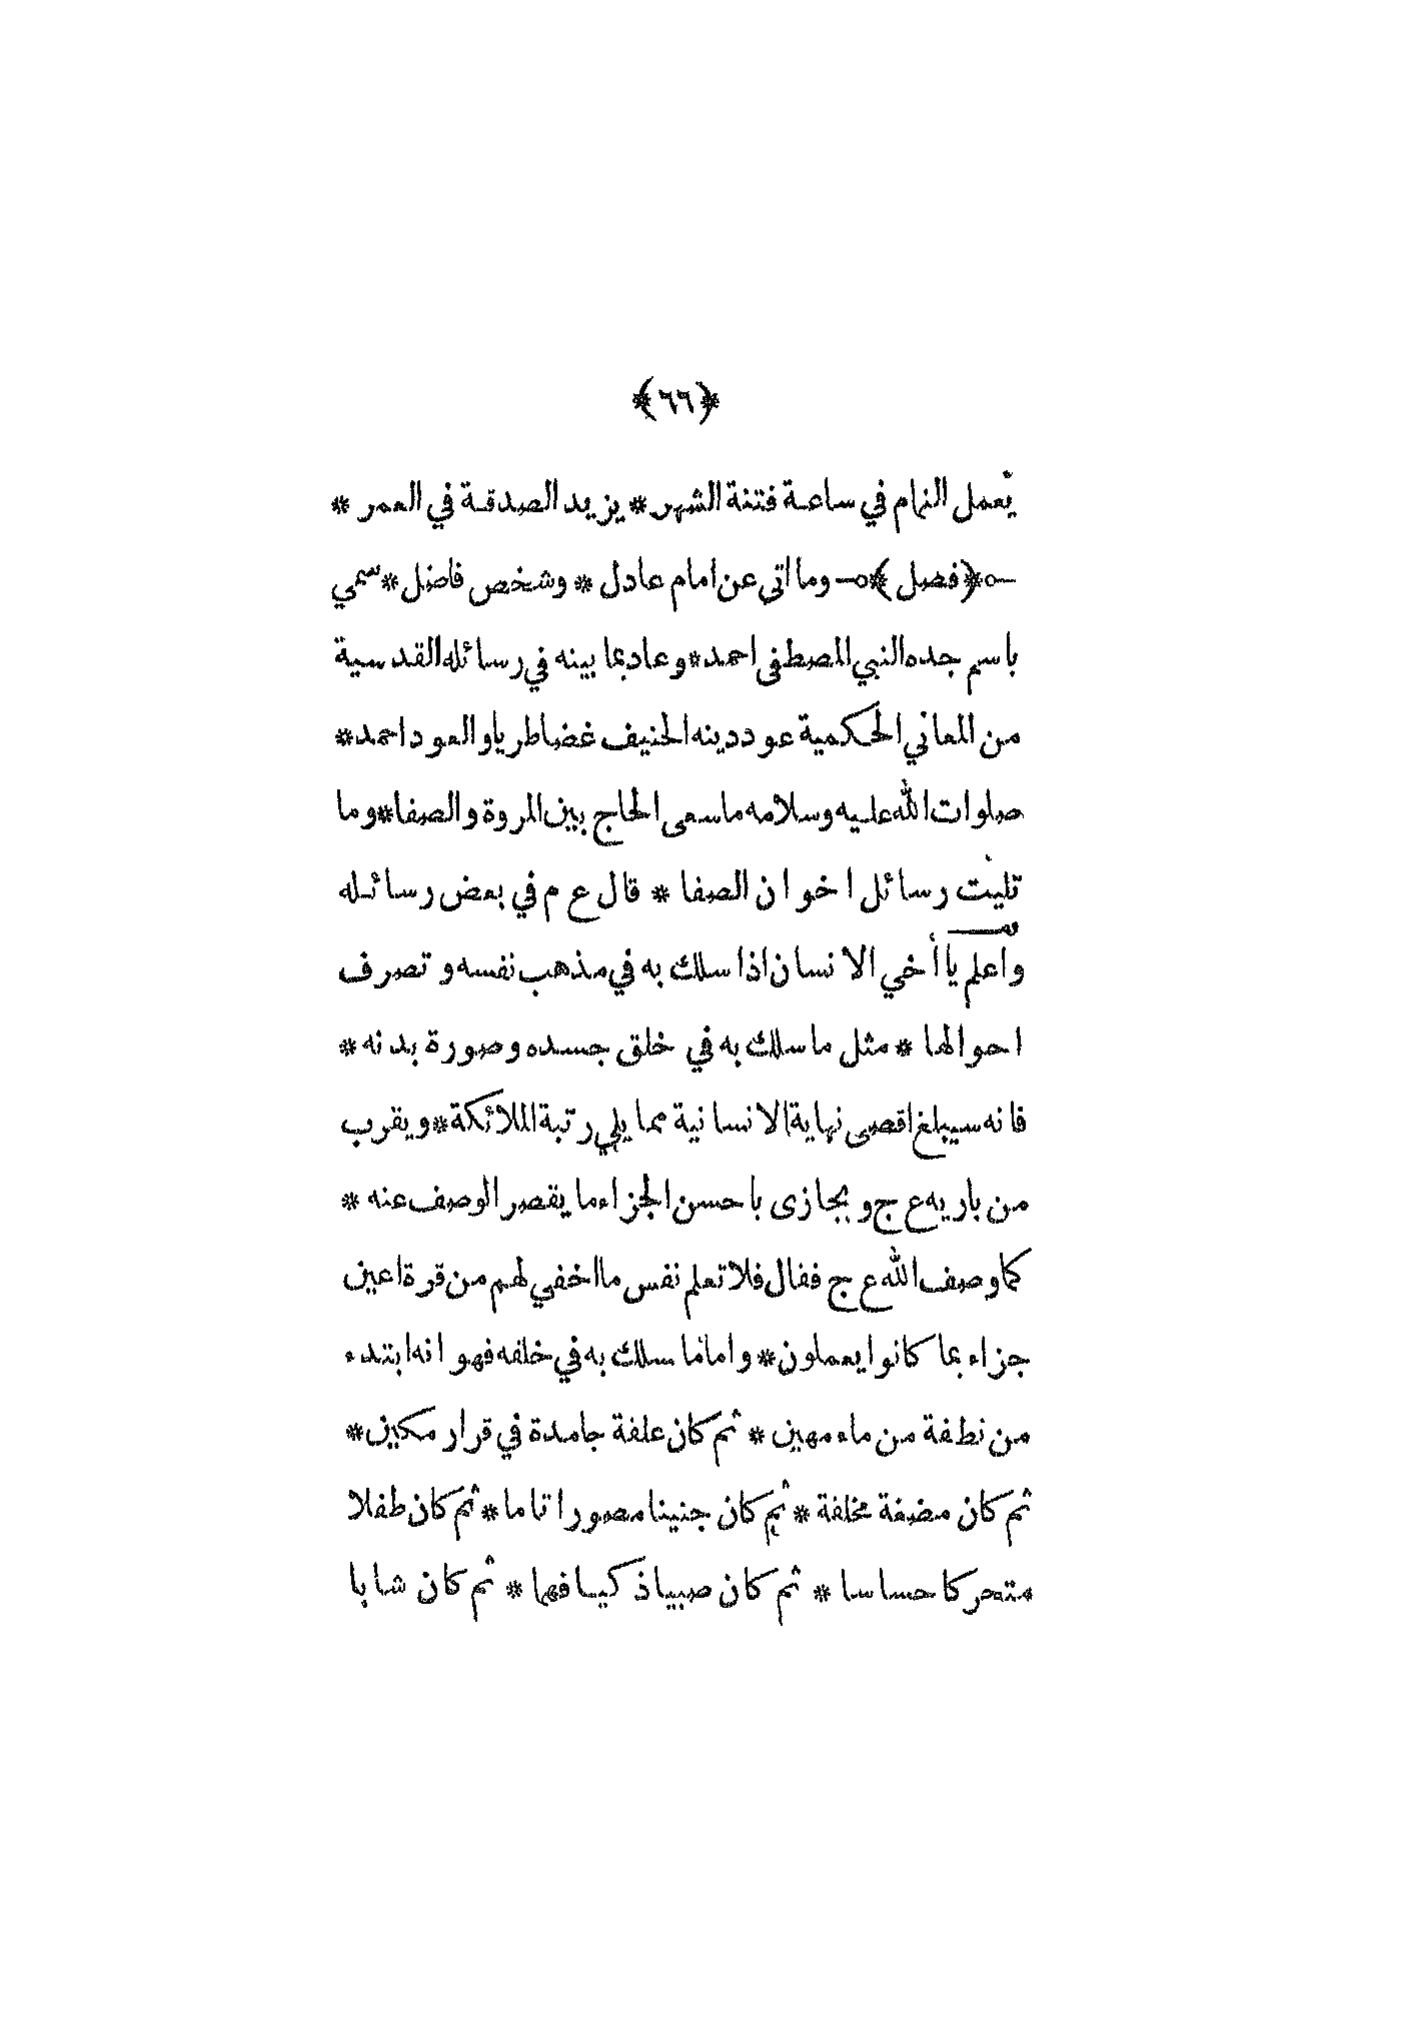 ﴿٦٦﴾
يعمل النمام في ساعة فتنة الشهر * يزيد الصدقة في العمر *
﴿فصل﴾ وما اتى عن امام عادل * وشخص فاضل * سمي
باسم جده النبي المصطفى احمد * وعاد بما بينه في رسائله القدسية
من المعاني الحكمية عود دينه الحنيف غضا طريا والعود احمد *
صلوات الله عليه وسلامه ما سعى الحاج بين المروة والصفا * وما
تليت رسائل اخوان الصفا * قال ع م في بعض رسائله
واعلم يا أخي الانسان اذا سلك به في مذهب نفسه وتصرف
احوالها * مثل ما سلك به في خلق جسده وصورة بدنه *
فانه سيبلغ اقصى نهاية الانسانية مما يلي رتبة الملائكة * ويقرب
من باريه ع ج ويجازى باحسن الجزاء ما يقصر الوصف عنه *
كما وصف الله ع ج فقال فلا تعلم نفس ما اخفي لهم من قرة اعين
جزاء بما كانوا يعملون * واما ما سلك به في خلقه فهو انه ابتدء
من نطفة من ماء مهين * ثم كان علقة جامدة في قرار مكين *
ثم كان مضغة مخلقة * ثم كان جنينا مصورا تاما * ثم كان طفلا
متحركا حساسا * ثم كان صبيا ذكيا فهما * ثم كان شابا